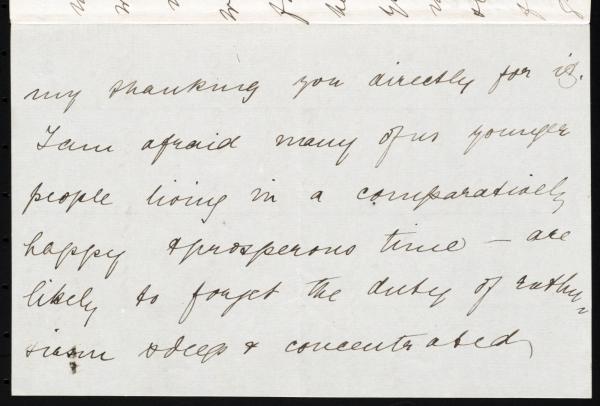 my thanking you directly for it.
I am afraid many of us younger
people living in a comparatively
happy & prosperous time – are
likely to forget the duty of enthu-
siasm & deep & concentrated